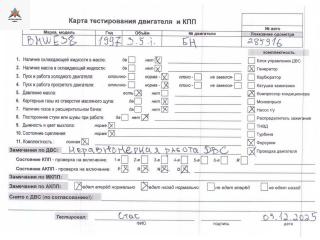 Карта тестирования двигателя и КПП
№ дата
Марка, модель Год Объём № двигателя Показание одометра
BMW E38 1997 3.5 i БН 284916
комплектность
1. Наличие охлаждающей жидкости и масла: да нет Блок управления ДВС
2. Наличие масла в охлаждающей жидкости: да нет Генератор
3. Пуск и работа холодного двигателя: отлично норма плохо не заводится Карбюратор
4. Пуск и работа прогретого двигателя: отлично норма плохо не заводится Катушка зажигания
5. Давление масла: есть нет Компрессор кондиционера
6. Картерные газы из отверстия масляного щупа: норма есть Моновпрыск
7. Наличие газов в расширительном бачке: да нет Насос г/у
8. Посторонние стуки или шумы при работе: да нет Распределитель зажигания
9. Дымность и цвет выхлопа: норма ТНВД
10. Состояние сцепления: норма Турбина
11. Комплектность: полная Форсунки
Замечания по ДВС: Неравномерная работа ДВС Проводка двигателя
Состояние КПП - проверка на включение: 1-я 2-я 3-я 4-я 5-я R
Состояние АКПП - проверка на включение: P R N D
Замечания по МКПП:
Замечания по АКПП: едет вперёд нормально едет назад нормально не едет вперёд не едет назад
Снято с ДВС (по согласованию!)
Тестировал Стас 03.12.2025
ФИО подпись дата